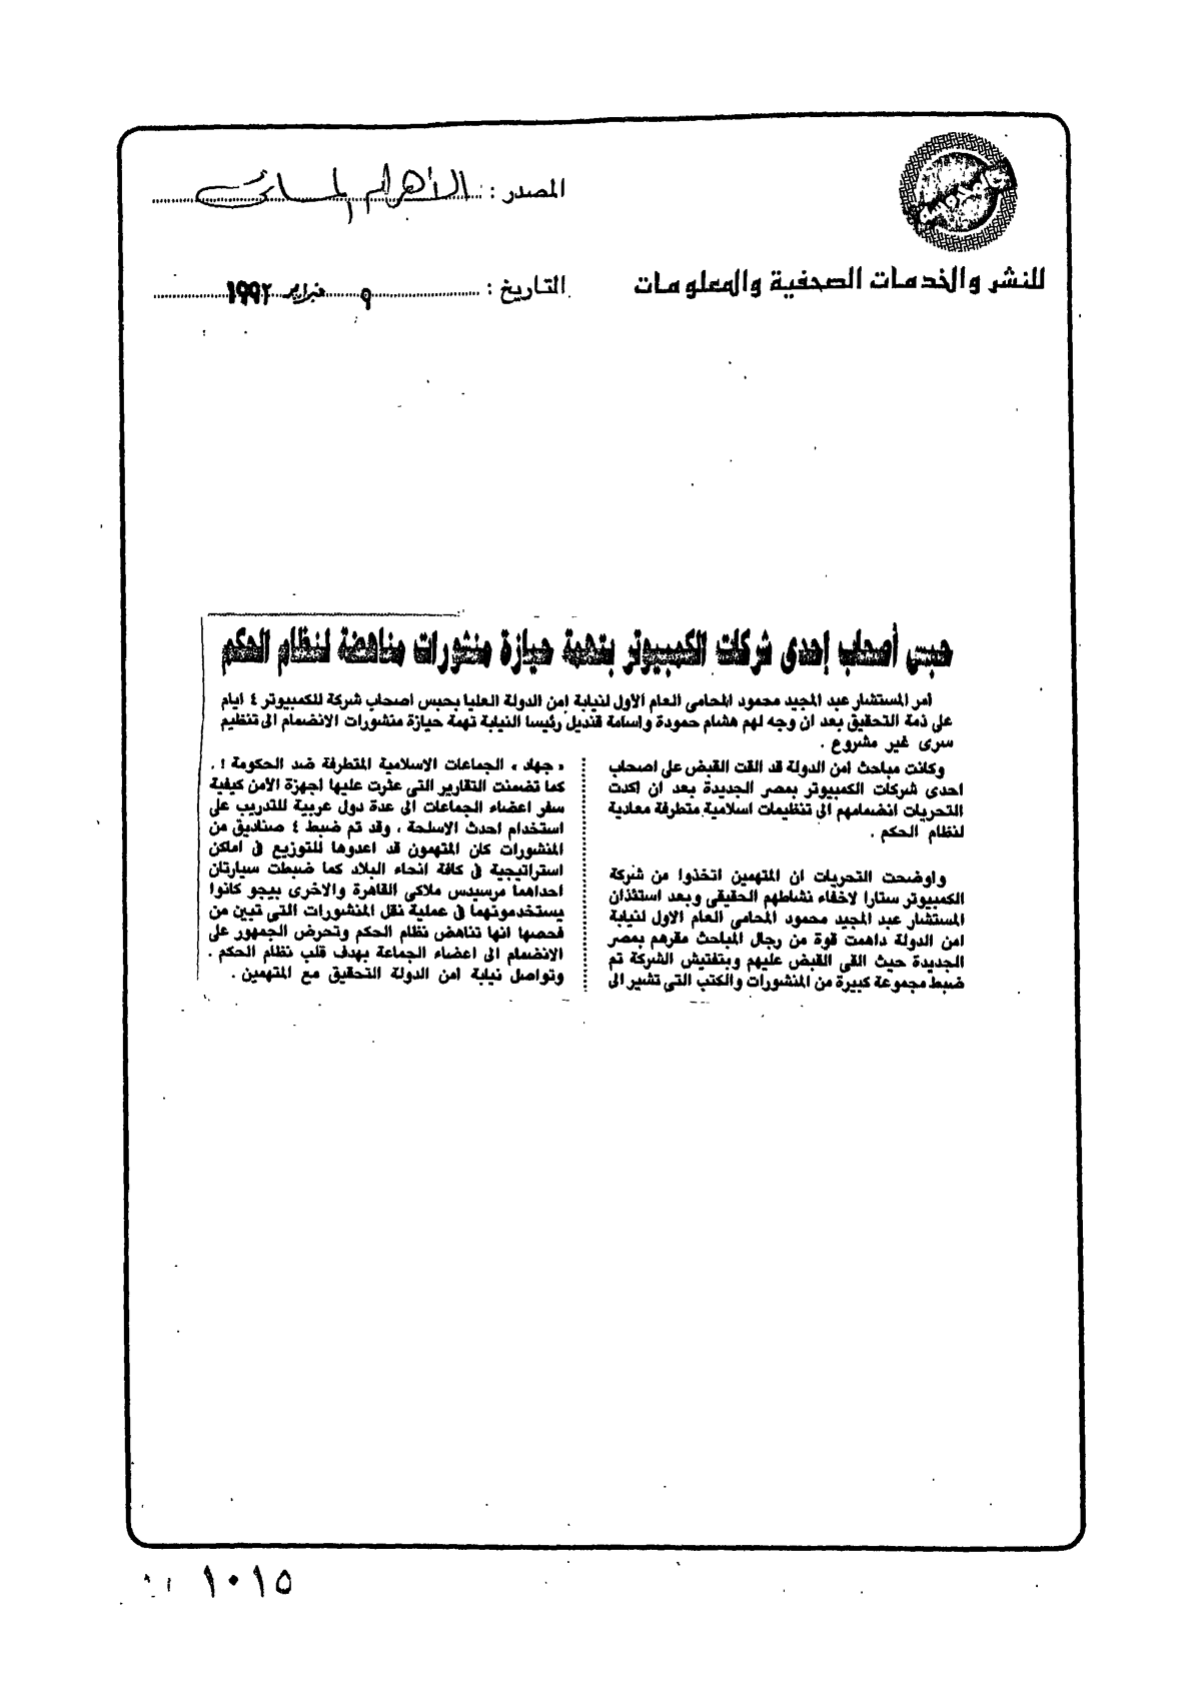 المصدر : الأهرام المسائى
للنشر والخدمات الصحفية والمعلومات
التاريخ : ٩ فبراير ١٩٩٢
حبس أصحاب إحدى شركات الكمبيوتر بتهمة حيازة منشورات مناهضة لنظام الحكم
امر المستشار عبد المجيد محمود المحامى العام الأول لنيابة امن الدولة العليا بحبس اصحاب شركة للكمبيوتر ٤ ايام
على ذمة التحقيق بعد ان وجه لهم هشام حمودة واسامة قنديل رئيسا النيابة تهمة حيازة منشورات الانضمام الى تنظيم
سرى غير مشروع .
وكانت مباحث امن الدولة قد القت القبض على اصحاب
احدى شركات الكمبيوتر بمصر الجديدة بعد ان اكدت
التحريات انضمامهم الى تنظيمات اسلامية متطرفة معادية
لنظام الحكم .
واوضحت التحريات ان المتهمين اتخذوا من شركة
الكمبيوتر ستارا لاخفاء نشاطهم الحقيقى وبعد استئذان
المستشار عبد المجيد محمود المحامى العام الاول لنيابة
امن الدولة داهمت قوة من رجال المباحث مقرهم بمصر
الجديدة حيث القى القبض عليهم وبتفتيش الشركة تم
ضبط مجموعة كبيرة من المنشورات والكتب التى تشير الى
« جهاد » الجماعات الاسلامية المتطرفة ضد الحكومة ! .
كما تضمنت التقارير التى عثرت عليها اجهزة الامن كيفية
سفر اعضاء الجماعات الى عدة دول عربية للتدريب على
استخدام احدث الاسلحة ، وقد تم ضبط ٤ صناديق من
المنشورات كان المتهمون قد اعدوها للتوزيع فى اماكن
استراتيجية فى كافة انحاء البلاد كما ضبطت سيارتان
احداهما مرسيدس ملاكى القاهرة والاخرى بيجو كانوا
يستخدمونهما فى عملية نقل المنشورات التى تبين من
فحصها انها تناهض نظام الحكم وتحرض الجمهور على
الانضمام الى اعضاء الجماعة بهدف قلب نظام الحكم .
وتواصل نيابة امن الدولة التحقيق مع المتهمين .
١٠١٥